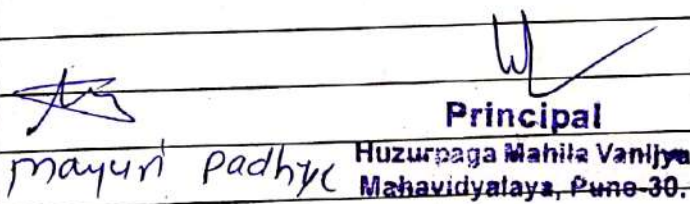 Principal
mayuri Padhye Huzurpaga Mahila Vanijya
Mahavidyalaya, Pune-30.